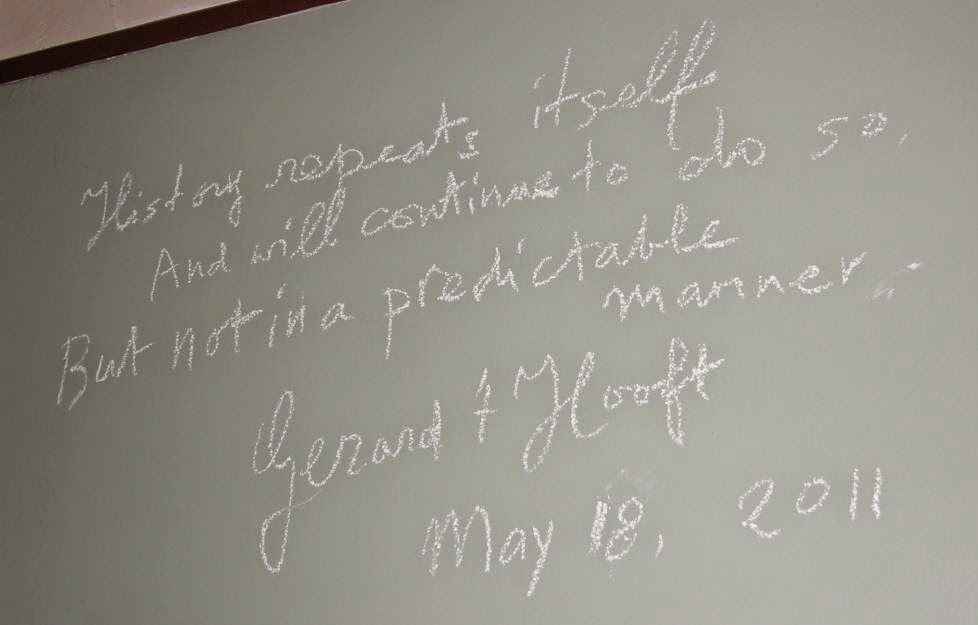 History repeats itself
And will continue to do so,
But not in a predictable
manner.
Gerard 't Hooft
May 18, 2011